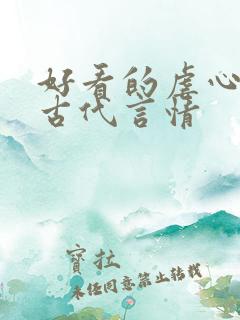 好看的虐心
古代言情
寶拉
未经同意禁止转载